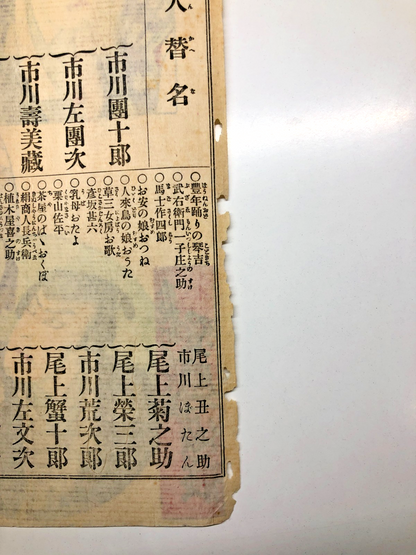 人替名
市川團十郎
市川左團次
市川壽美藏
○豊年踊りの琴吉
○武右衛門一子庄之助
○馬士作四郎
○お安の娘おつね
○人來鳥の娘おうた
○草三女房お歌
○彦坂甚六
○乳母おたよ
○栗山佐平
○茶屋のばゝおくぼ
○絹商人長兵衛
○植木屋喜之助
尾上丑之助
市川ぼたん
尾上菊之助
尾上榮三郎
市川荒次郎
尾上蟹十郎
市川左文次